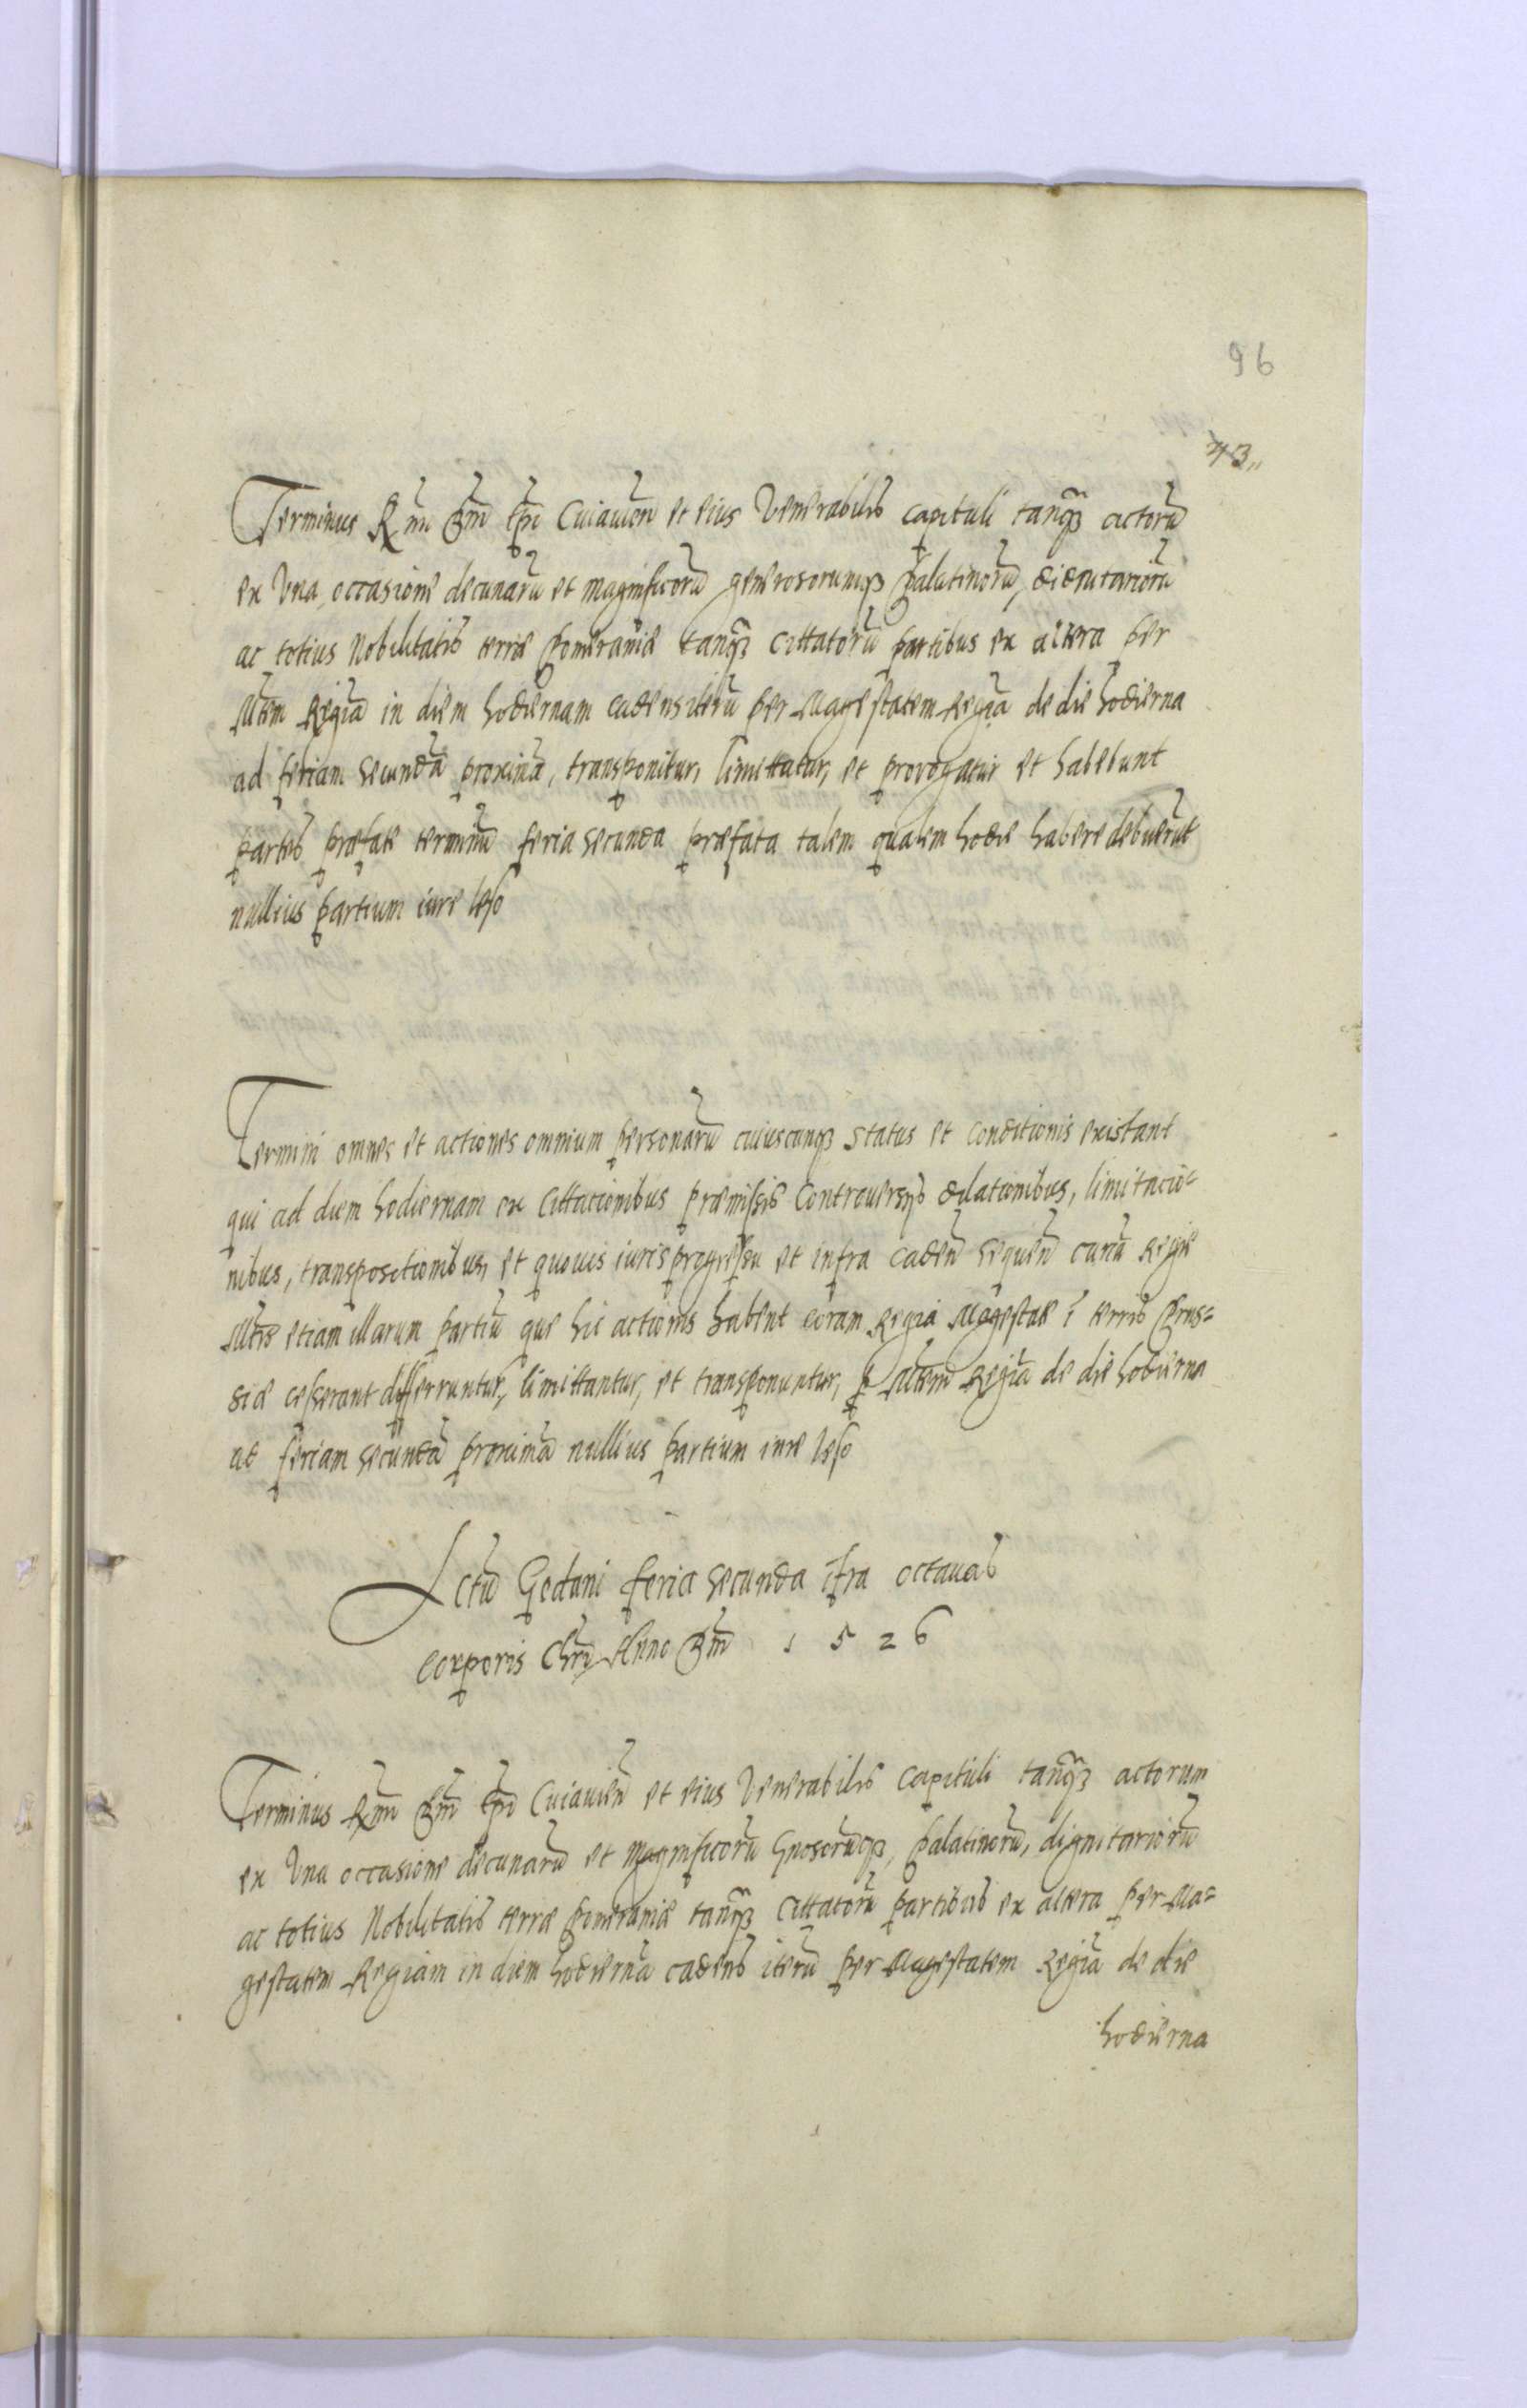 96
43
Terminus Rm̄i Dm̄ Ep̄i Cuiauien̄ et eius Venerabilis capituli tanq̄ȝ actorū
ex Vna, occasione decimarū et magnificorū generosorumqȝ palatinorū, dignitariorū
ac totius Nobilitatis terræ Pomeraniæ tanq̄ȝ cittatorū partibus ex altera per
Mtem Regiā in diem hodiernam cadens iterū per Magestatem Regiā de die hodierna
ad feriam secundā proximā, transponitur, limittatur, et prorogatur et habebunt
partes præfate terminū feria secunda præfata talem qualem hodie habere debuerūt
nullius partium iure leso
Termini omnes et actiones omnium personarū cuiuscunqȝ status et conditionis existant
qui ad diem hodiernam ex Cittationibus præmissis Controuersijs dilationibus, limitatio=
nibus, transpositionibus, et quouis iuris progressu et infra caden̄ sequen̄ curiā Regiæ
Mtis etiam illarum partiū que hic actiones habent coram Regia Magestate ī terris Prus=
siæ cesserant differruntur, limittantur, et transponuntur, ꝑ Mtem Regiā de die hodierna
ad feriam secundā proximā nullius partium iure leso
Actū Gedani feria secunda īfra octauas
corporis Chri Anno Dm̄ 1526
Terminus Rm̄i Dm̄ Ep̄i Cuiauien̄ et eius Venerabilis Capituli tanq̄ȝ actorum
ex Vna occasione decimarū et Magnificorū Gnosorūqȝ, palatinorū, dignitariorū
ac totius Nobilitatis terræ Pomeraniæ tanq̄ȝ Cittatorū partibus ex altera per Ma=
gestatem Regiam in diem hodiernā cadens iterū per Magestatem Regiā de die
hodierna